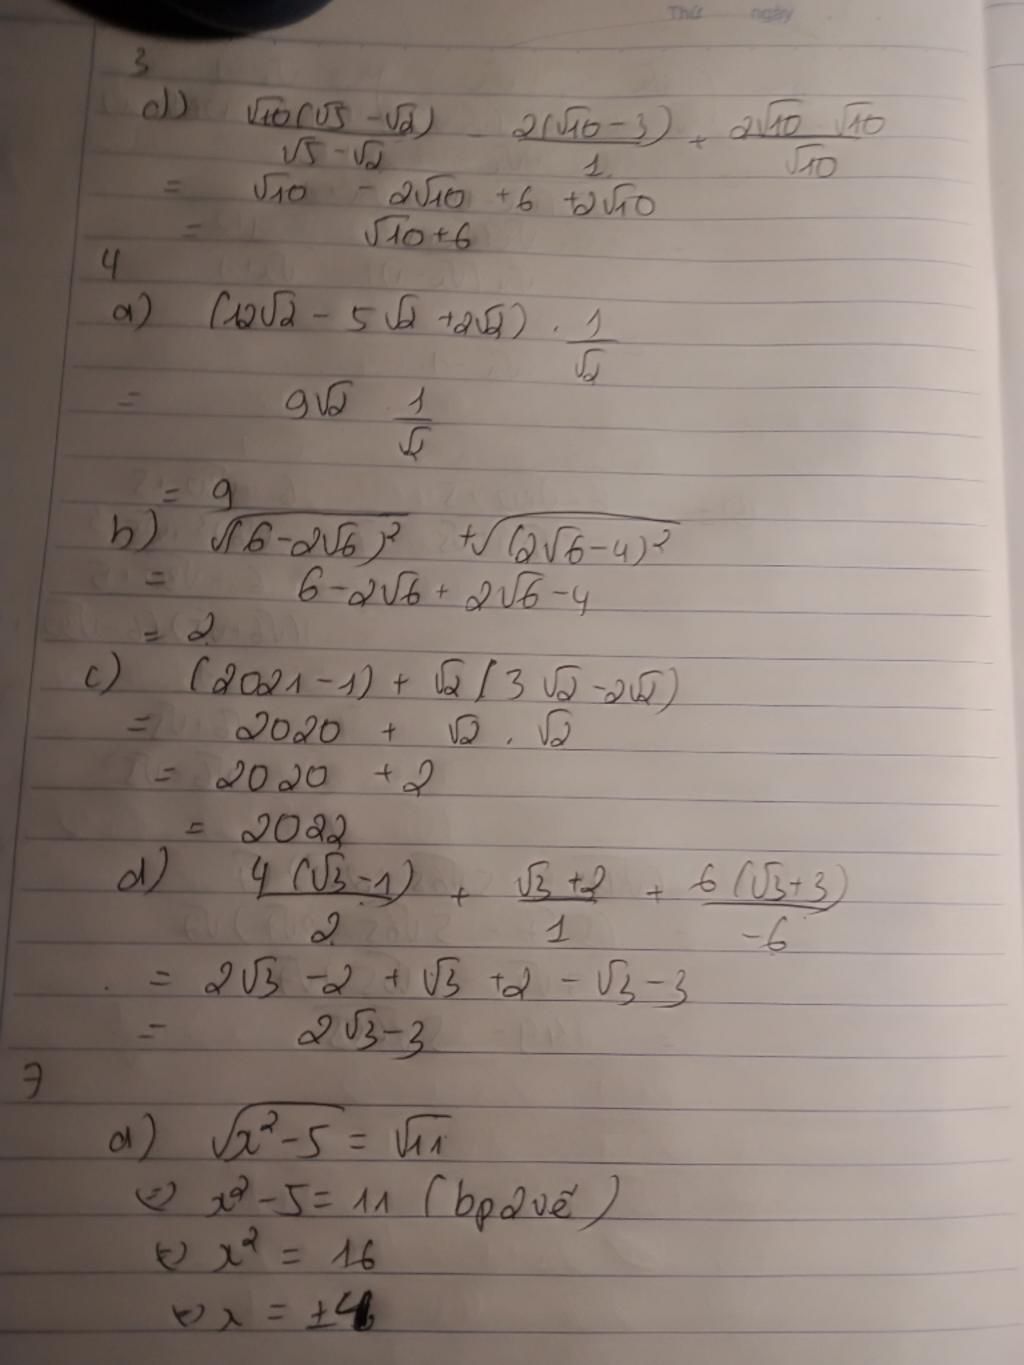 Thứ ngày
3
d) √10(√5 - √2)/(√5 - √2) - 2(√10 - 3)/1 + 2√10 √10/√10
= √10 - 2√10 + 6 + 2√10
= √10 + 6
4
a) (12√2 - 5√2 + 2√2) . 1/√2
= 9√2 1/√2
= 9
b) √(6 - 2√6)² + √(2√6 - 4)²
= 6 - 2√6 + 2√6 - 4
= 2
c) (2021 - 1) + √2 (3√2 - 2√2)
= 2020 + √2 . √2
= 2020 + 2
= 2022
d) 4(√3 - 1)/2 + (√3 + 2)/1 + 6(√3 + 3)/-6
= 2√3 - 2 + √3 + 2 - √3 - 3
= 2√3 - 3
7
a) √x² - 5 = √11
⇔ x² - 5 = 11 (bp 2 vế)
⇔ x² = 16
⇔ x = ±4